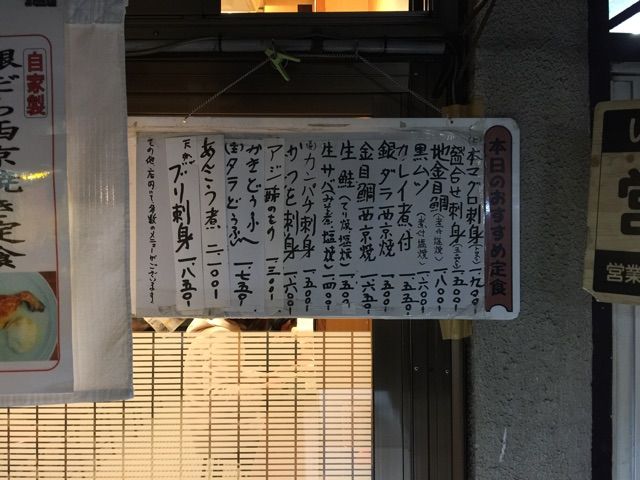 本日のおすすめ定食
本マグロ刺身 一、九〇〇
盛合せ刺身 一、五〇〇
地金目鯛(煮付 塩焼) 一、八〇〇
黒ムツ(煮付 塩焼) 一、六〇〇
カレイ煮付 一、五五〇
銀ダラ西京焼
金目鯛西京焼 一、六五〇
生鮭(てり焼 塩焼) 一、五〇
生サバ(みそ煮 塩焼) 一、四〇〇
カンパチ刺身 一、五〇〇
かつを刺身 一、六〇〇
アジ酢のもの 一、三〇〇
かきどうふ
タラどうふ 一、七五〇
あんこう煮 二、一〇〇
天然ブリ刺身 一、八五〇
その他店内にて多数のメニューがございます
自家製
銀だら西京焼き定食
営
営業